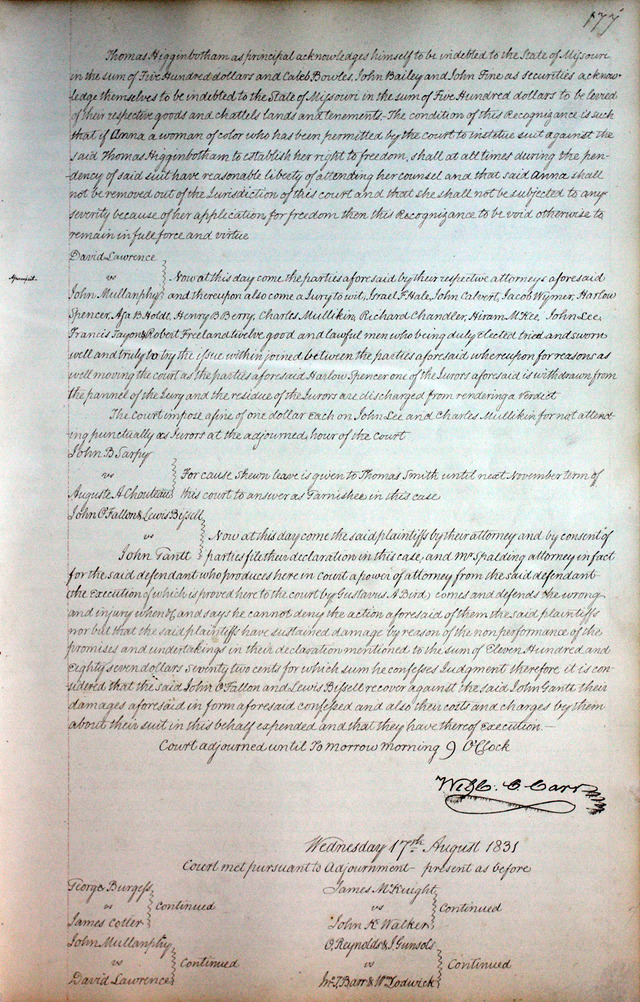 177
Thomas Higginbotham as principal acknowledges himself to be indebted to the State of Missouri
in the sum of Five Hundred dollars and Caleb Bowles, John Bailey and John Fine as securities acknow-
ledge themselves to be indebted to the State of Missouri in the sum of Five Hundred dollars to be levied
of their respective goods and chattels lands and tenements. The condition of this Recognizance is such
that if Anna a woman of color who has been permitted by the court to institue suit against the
said Thomas Higginbotham to establish her right to freedom, shall at all times during the pen-
dency of said suit have reasonable liberty of attending her counsel and that said Anna shall
not be removed out of the Jurisdiction of this court and that she shall not be subjected to any
severity because of her application for freedom then this Recognizance to be void otherwise to
remain in full force and virtue
David Lawrence
vs
John Mullanphy
Now at this day come the parties aforesaid by their respective attorneys aforesaid
and thereupon also come a Jury to wit, Israel F. Hale, John Calvert, Jacob Wymer, Harlow
Spencer, Asa B Holde, Henry B Berry, Charles Mullikin, Richard Chandler, Hiram McKee, John Lee,
Francis Tayon & Robert Freeland twelve good and lawful men who being duly elected tried and sworn
well and truly to try the issue within joined between the parties aforesaid whereupon for reasons as
well moving the court as the parties aforesaid Harlow Spencer one of the Jurors aforesaid is withdrawn from
the pannel of the Jury and the residue of the Jurors are discharged from rendering a verdict
The Court impose a fine of one dollar each on John Lee and Charles Mullikin for not attend-
ing punctually as Jurors at the adjourned hour of the court
John B Sarpy
vs
Auguste A Chouteau
For cause Shewn leave is given to Thomas Smith until next November term of
this court to answer as Garnishee in this case
John O'Fallon & Lewis Bissell
vs
John Gantt
Now at this day come the said plaintiffs by their attorney and by consent of
parties file their declaration in this case, and Mr Spalding attorney in fact
for the said defendant who produces here in court a power of attorney from the said defendant
the Execution of which is proved here to the court by Gustavus A Bird comes and defends the wrong
and injury when &c and says he cannot deny the action aforesaid of them the said plaintiffs
nor but that the said plaintiffs have sustained damage by reason of the non performance of the
promises and undertakings in their declaration mentioned to the sum of Eleven Hundred and
Eighty seven dollars Seventy two cents for which sum he confesses Judgment therefore it is con-
sidered that the said John O'Fallon and Lewis Bissell recover against the said John Gantt their
damages aforesaid in form aforesaid confessed and also their costs and charges by them
about their suit in this behalf expended and that they have thereof Execution.
Court adjourned until To Morrow morning 9 O'Clock
Will. C. Carr
Wednesday 17th August 1831
Court met pursuant to Adjournment present as before
George Burgess
vs
James Coller
Continued
James McKnight
vs
John K Walker
Continued
John Mullanphy
vs
David Lawrence
Continued
O, Reynolds & J Gunsols
vs
Continued